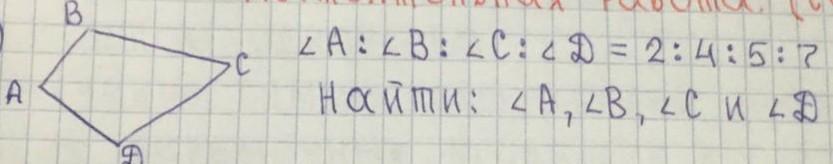 B
C
A
D
∠A : ∠B : ∠C : ∠D = 2 : 4 : 5 : ?
Найти: ∠A, ∠B, ∠C и ∠D